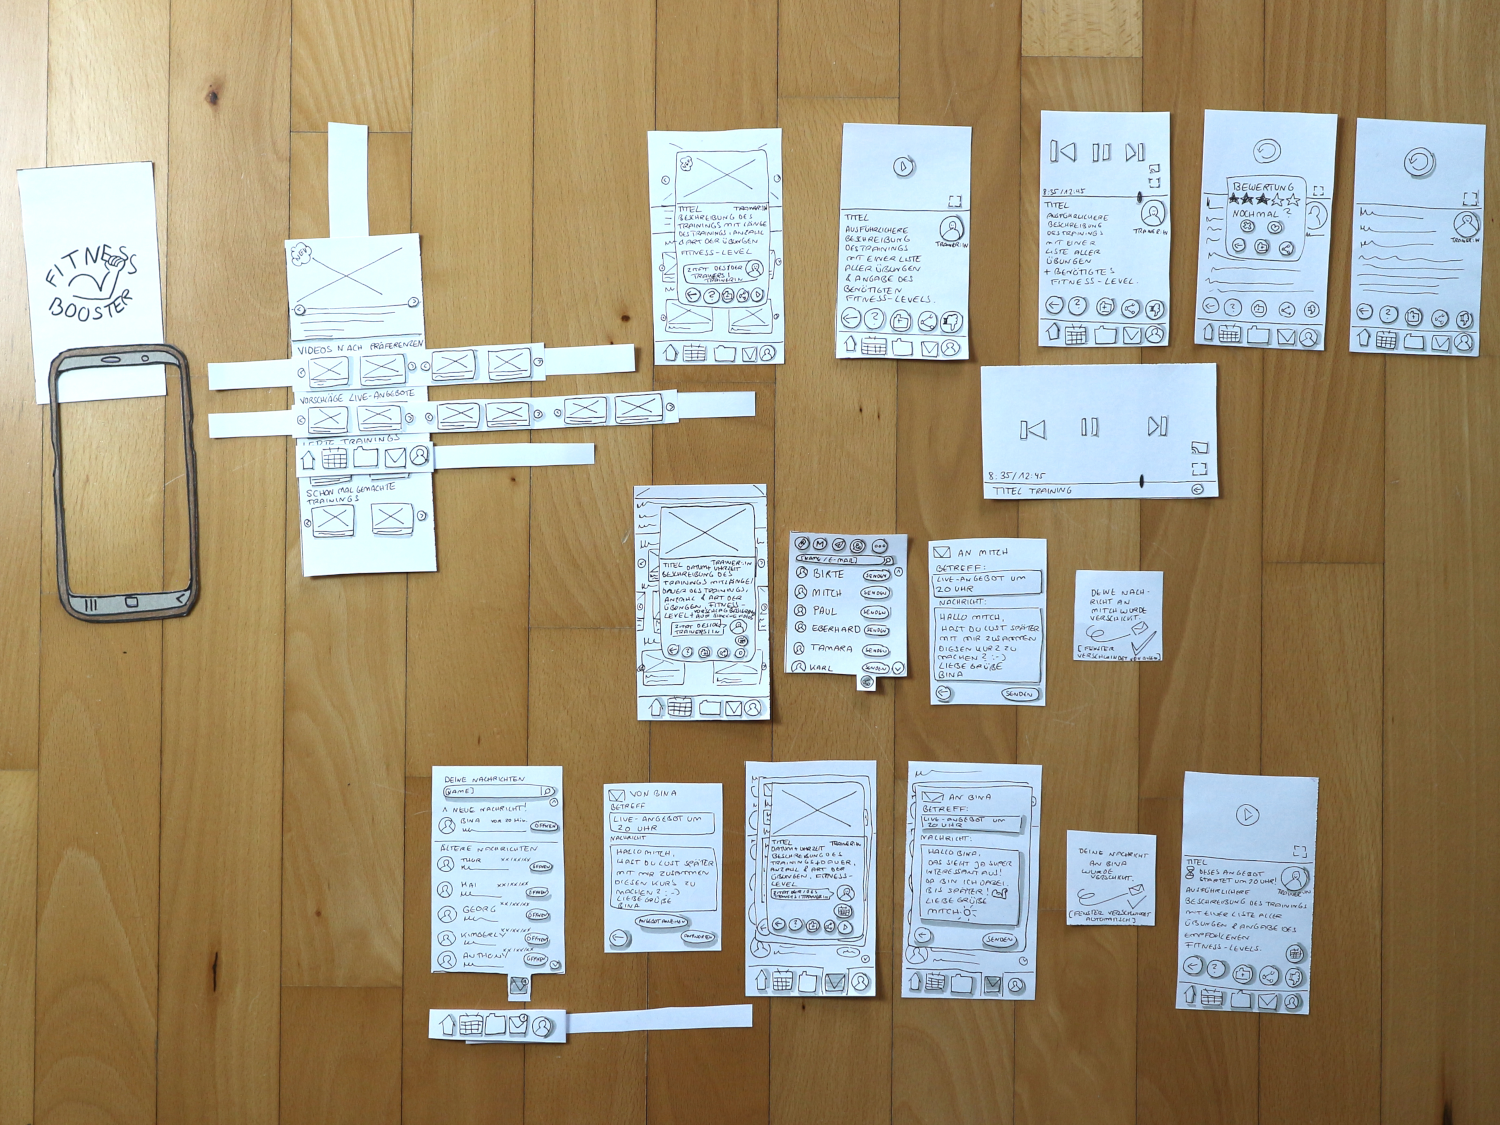 FITNESS
BOOSTER
NEU
VIDEOS NACH PRÄFERENZEN
VORSCHLÄGE LIVE-ANGEBOTE
LETZTE TRAININGS
SCHON MAL GEMACHTE
TRAININGS
TITEL TRAINER:IN
BESCHREIBUNG DES
TRAININGS MIT LÄNGE
DES TRAININGS, ANZAHL
& ART DER ÜBUNGEN
FITNESS-LEVEL
ZITAT DES/DER
TRAINERS/
TRAINERIN
TITEL
AUSFÜHRLICHERE
BESCHREIBUNG
DES TRAININGS
MIT EINER LISTE
ALLER ÜBUNGEN
& ANGABE DES
BENÖTIGTEN
FITNESS-LEVELS.
TRAINER:IN
8:35/12:45
TITEL
AUSFÜHRLICHERE
BESCHREIBUNG
DES TRAININGS
MIT EINER
LISTE ALLER
ÜBUNGEN
+ BENÖTIGTES
FITNESS-LEVEL.
TRAINER:IN
BEWERTUNG
NOCHMAL?
TRAINER:IN
8:35/12:45
TITEL TRAINING
TITEL TRAINER:IN
DATUM + UHRZEIT
BESCHREIBUNG DES
TRAININGS MIT LÄNGE/
DAUER DES TRAININGS,
ANZAHL & ART DER
ÜBUNGEN, FITNESS-
LEVEL
ZITAT DES/DER
TRAINERS/IN
[NAME/E-MAIL]
BIRTE SENDEN
MITCH SENDEN
PAUL SENDEN
EBERHARD SENDEN
TAMARA SENDEN
KARL SENDEN
AN MITCH
BETREFF:
LIVE-ANGEBOT UM
20 UHR
NACHRICHT:
HALLO MITCH,
HAST DU LUST SPÄTER
MIT MIR ZUSAMMEN
DIESEN KURS ZU
MACHEN? :-)
LIEBE GRÜSSE
BINA
SENDEN
DEINE NACH-
RICHT AN
MITCH WURDE
VERSCHICKT.
[FENSTER
VERSCHWINDET
DEINE NACHRICHTEN
[NAME]
NEUE NACHRICHT!
BINA VOR 20 Min. ÖFFNEN
ÄLTERE NACHRICHTEN
THUR XX:XX:XX ÖFFNEN
MAI XX:XX:XX ÖFFNEN
GEORG XX:XX:XX ÖFFNEN
KIMBERLY XX:XX:XX ÖFFNEN
ANTHONY XX:XX:XX ÖFFNEN
VON BINA
BETREFF
LIVE-ANGEBOT UM
20 UHR
NACHRICHT
HALLO MITCH,
HAST DU LUST SPÄTER
MIT MIR ZUSAMMEN
DIESEN KURS ZU
MACHEN? :-)
LIEBE GRÜSSE
BINA
ANGEBOT ANSEHEN
ANTWORTEN
TITEL TRAINER:IN
DATUM + UHRZEIT
BESCHREIBUNG DES
TRAININGS + DAUER,
ANZAHL & ART DER
ÜBUNGEN, FITNESS-
LEVEL
ZITAT DER/DES
TRAINERS/TRAINERIN
AN BINA
BETREFF:
LIVE-ANGEBOT UM
20 UHR
NACHRICHT:
HALLO BINA,
DAS SIEHT JA SUPER
INTERESSANT AUS!
DA BIN ICH DABEI.
BIS SPÄTER!
LIEBE GRÜSSE
MITCH
SENDEN
DEINE NACHRICHT
AN BINA
WURDE
VERSCHICKT.
[FENSTER VERSCHWINDET
AUTOMATISCH]
TITEL
DIESES ANGEBOT
STARTET UM 20 UHR!
TRAINER:IN
AUSFÜHRLICHERE
BESCHREIBUNG DES TRAININGS
MIT EINER LISTE ALLER
ÜBUNGEN & ANGABE DES
EMPFOHLENEN
FITNESS-LEVELS.